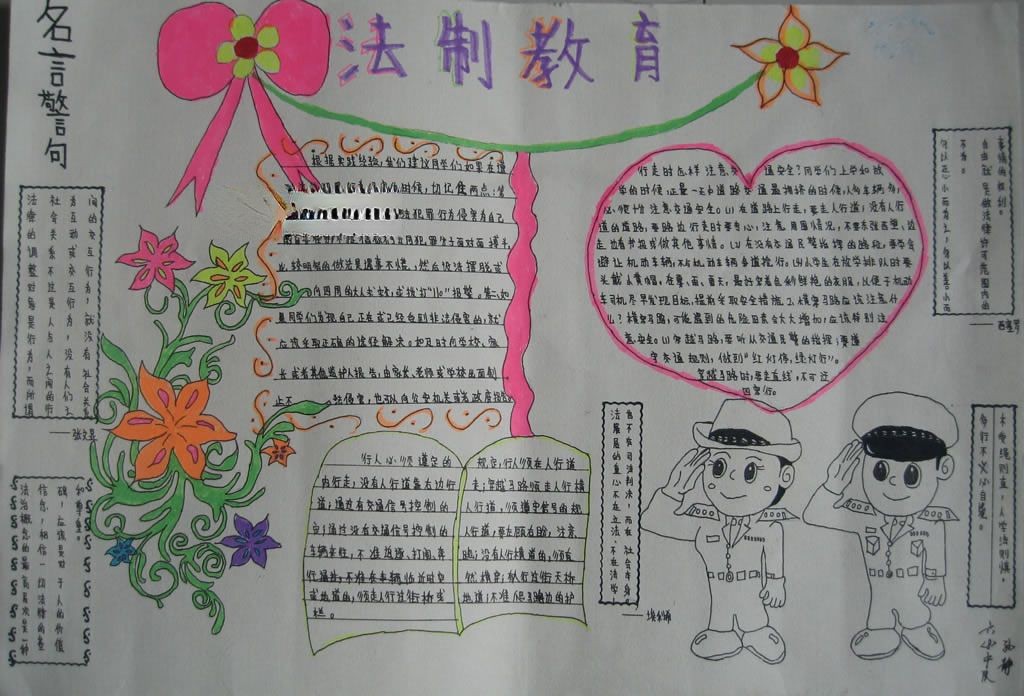 名言警句
法制教育
根据实践经验,我们建议同学们如果在遭
时候,切记住两点:第
犯罪行为侵害为自己
较明智的做法是遇事不慌,然后设法摆脱或
向四周的大人求救,或拨打110报警。第二,如
果同学们发现自己正在或已经受到非法侵害的,就
应该采取正确的途径解决。如及时向学校,家
长或者其他监护人报告,由家长、老师或学校出面制
止不
侵害,也可以向公安机关或者政府
行走时怎样注意交通安全?同学们上学和放
学的时候,正是一天中道路交通最拥挤的时候,人多车辆多,
必须十分注意交通安全。(1)在道路上行走,要走人行道;没有人行
道的道路,要路边行走时要专心,注意周围情况,不要东张西望、边
走边看书报或做其他事情。(2)在没有交通民警指挥的路段,要学会
避让机动车辆,不与机动车辆争道抢行。(3)小学生在放学排队时要
头戴小黄帽,在雾、雨、雪天,最好穿着色彩鲜艳的衣服,以便于机动
车司机尽早发现目标,提前采取安全措施。2、横穿马路应该注意什
么?横穿马路,可能遇到的危险因素会大大增加,应该特别注
意安全。(1)穿越马路,要听从交通民警的指挥;要遵
守交通规则,做到“红灯停,绿灯行”。
穿越马路时,要走直线,不可迂
回穿行。
行人必须遵守的
规定,行人须在人行道
内行走,没有人行道靠右边行
走;穿越马路须走人行横
道;通过有交通信号控制的
人行道,须遵守信号的规
定;通过没有交通信号控制的
人行道,要左顾右盼,注意
车辆来往,不准追逐、打闹、奔
跑;没有人行横道的,须直
行通过,不准在车辆临近时突
然横穿;有人行过街天桥
或地道的,须走人行过街桥或
地道;不准爬马路边的护
栏。
间的交互行为,就没有社会关系
为互动或交互行为,没有人们之
社会关系不过是人与人之间的行
法律的调整对象是行为,而所谓
——张文显
和尊重。
碑,应该是对于人的价值
信念,相信一切法律的基
法治概念的最高层次是一种
事情的权利。
自由就是做法律许可范围内的
不为。
勿以恶小而为之,勿以善小而
——西塞罗
也不在司法判决,而在社会本身。
法发展的重心不在立法,不在法学
——埃利希
木受绳则直,人学法则慎,
多行不义必自毙。
六小中队
孙静